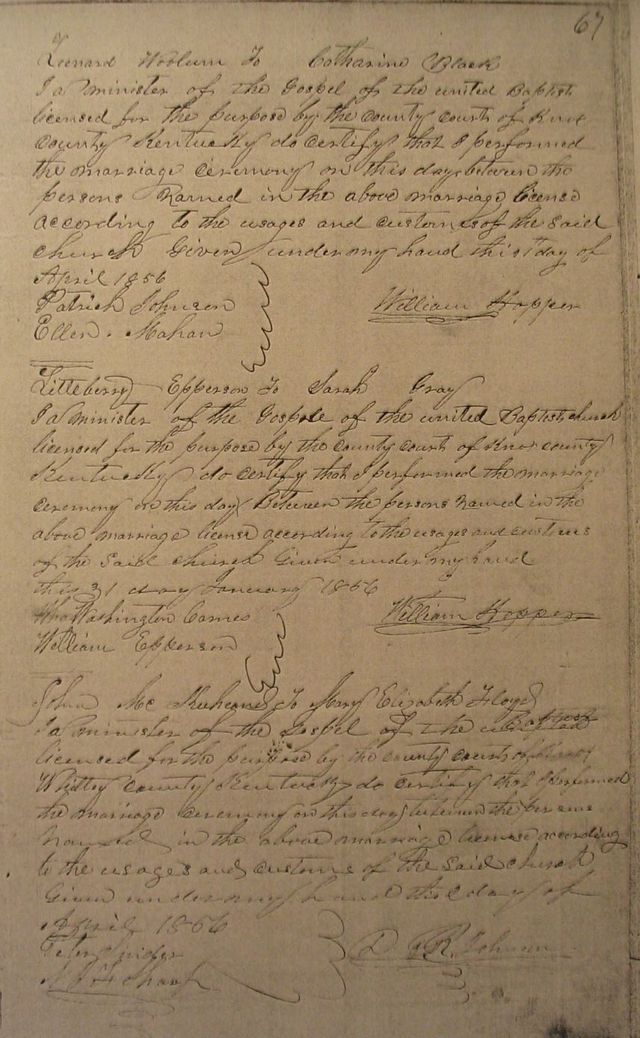 67
Leonard Woolum To Catharine Black
I a minister of the Gospel of the united Baptist
licensed for the purpose by the county court of Knox
county Kentucky do certify that I performed
the marriage ceremony on this day between the
persons Named in the above marriage license
according to the usages and customs of the said
church Given under my hand this 1 day of
April 1856
Patrick Johnson William Hopper
Ellen Mahan
Litteberry Epperson To Sarah Gray
I a minister of the Gospele of the united Baptist church
licensed for the purpose by the county court of Knox county
Kentucky do certify that I performed the marriage
ceremony on this day Between the persons Named in the
above marriage license according to the usages and customs
of the said church Given under my hand
this 31 day January 1856
Washington Carnes William Hopper
William Epperson
John Mc To Mary Elizabeth Floyd
I a minister of the Gospel of the united Baptist
licensed for the purpose by the county court of
Whitley county Kentucky do certify that I performed
the marriage ceremony on this day between the persons
Named in the above marriage license according
to the usages and customs of the said church
Given under my hand this 2 day of
April 1856
Peter Snider